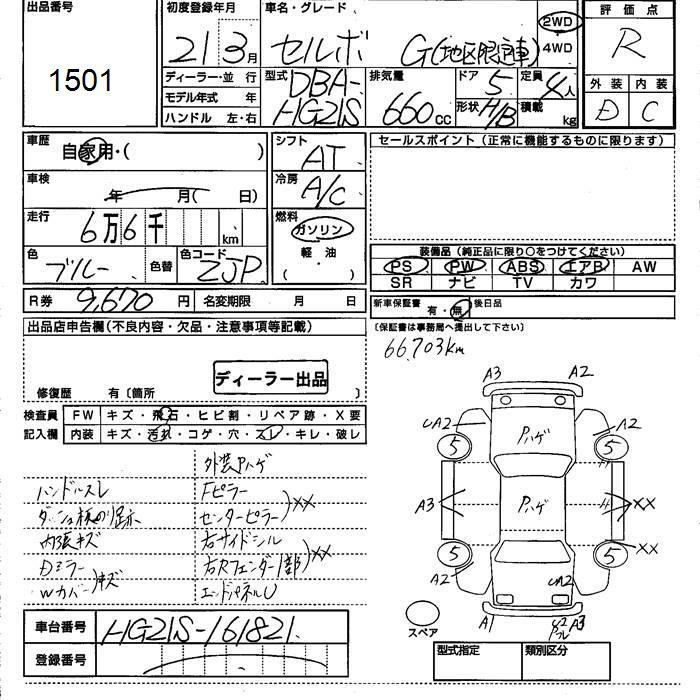 出品番号
1501
初度登録年月
21 3月
車名・グレード
セルボ G(地区限定車)
2WD
4WD
評価点
R
外装 内装
D C
ディーラー・並行
モデル年式 年
ハンドル 左・右
型式
DBA-
HG21S
排気量
660cc
ドア
5
形状 H/B
定員
4人
積載
kg
車歴
自家用・( )
車検
年 月( 日)
走行
6万6千 km
色
ブルー
色替
色コード
ZJP
シフト
AT
冷房
A/C
燃料
ガソリン
軽油
( )
セールスポイント(正常に機能するものに限ります)
装備品(純正品に限り○をつけてください)
PS PW ABS エアB AW
SR ナビ TV カワ
R券 9,670円 名変期限 月 日
新車保証書 有・無 後日品
(保証書は事務局へ提出して下さい)
出品店申告欄(不良内容・欠品・注意事項等記載)
66,703km
ディーラー出品
修復歴 有〔箇所 〕
検査員
記入欄
FW キズ・飛石・ヒビ割・リペア跡・X要
内装 キズ・汚れ・コゲ・穴・スレ・キレ・破レ
外装Pハゲ
ハンドルスレ Fピラー
ダッシュ板のり跡 センターピラー )XX
内張キズ 右サイドシル
Dミラー 右Rフェンダー(部) )XX
Wカバー )キズ エンドパネルU
車台番号 HG21S-161821
登録番号
A3 A2
UA2 Pハゲ A2
5 5
A3 Pハゲ XX
5 5 XX
A2 UA2
A1 A3
スペア
型式指定 類別区分